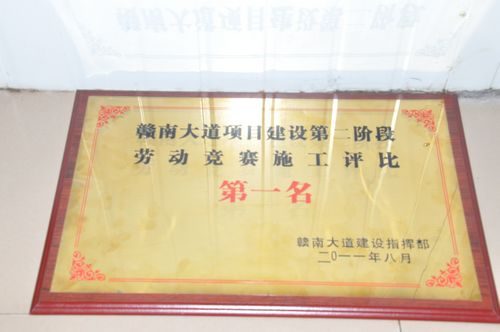 赣南大道项目建设第二阶段
劳动竞赛施工评比
第一名
赣南大道建设指挥部
二0一一年八月